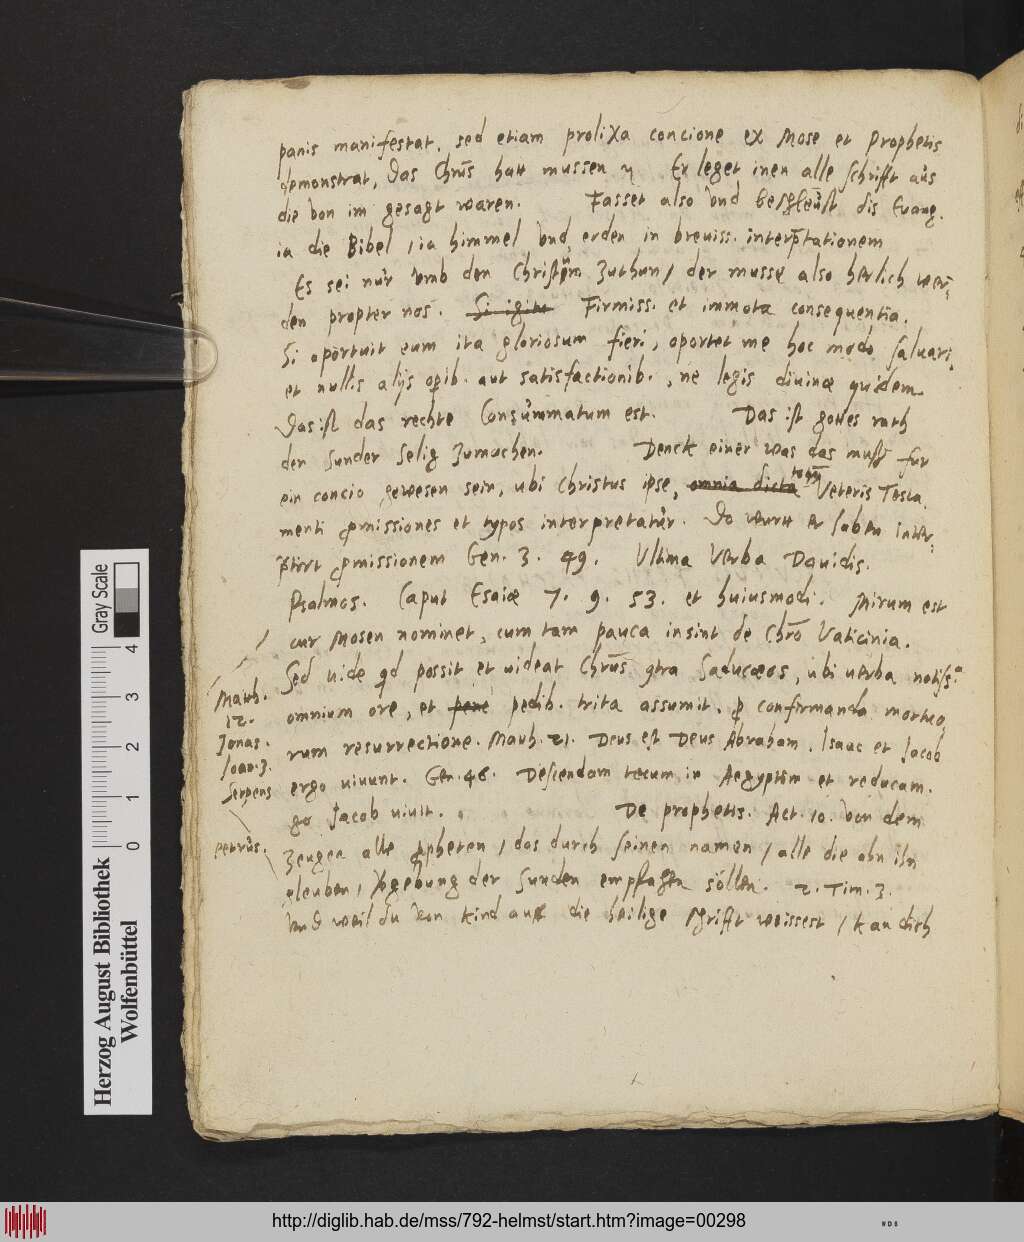 panis manifestat, sed etiam prolixa concione ex Mose et Prophetis
demonstrat, das Chrūs hatt mussen Er leget inen alle schrifft aus
die von im gesagt waren. Fasset also vnd beschleust dis Euang.
ia die Bibel, ia himmel vnd erden in breuiss. interp̄tationem
Es sei nur vmb den Christum zuthun / der musse also herlich wer-
den propter nos. Si igitur Firmiss. et immota consequentia.
Si oportuit eum ita gloriosum fieri, oportet me hoc modo saluari,
et nullis alijs opib. aut satisfactionib., ne legis diuinae quidem.
Das ist das rechte Consummatum est. Das ist gottes rath
den sunder selig zumachen. Denck einer was das muss fur
ein concio gewesen sein, ubi Christus ipse, omnia dicta totius Veteris Testa
menti pmissiones et typos interpretatur. Do wurtt er haben inter-
p̄tirt pmissionem Gen. 3. 49. Vltima Verba Dauidis.
Psalmos. Caput Esaiae 7. 9. 53. et huiusmodi. Mirum est
cur Mosen nominet, cum tam pauca insint de Chrō Vaticinia.
Sed uide qd possit et uideat Chrūs gtra Saducaeos, ubi uerba notiss.ᵃ
Matth.
12.
Jonas.
Joan. 3.
Serpens
omnium ore, et pene pedib. trita assumit, p confirmanda mortuo
rum resurrectione. Matth. 21. Deus est Deus Abraham, Isaac et Jacob
ergo uiuunt. Gen. 46. Descendam tecum in Aegyptum et reducam.
go Jacob uiuit. De prophetis. Act. 10. Von dem
petrus.
zeugen alle ppheten / das durch seinen namen / alle die ahn ihn
gleuben, vgebung der sunden empfahen sollen. 2. Tim. 3.
Vnd weil du von kind auff die heilige schrifft weissest / kan dich
Herzog August Bibliothek
Wolfenbüttel
Gray Scale
0 1 2 3 4
http://diglib.hab.de/mss/792-helmst/start.htm?image=00298